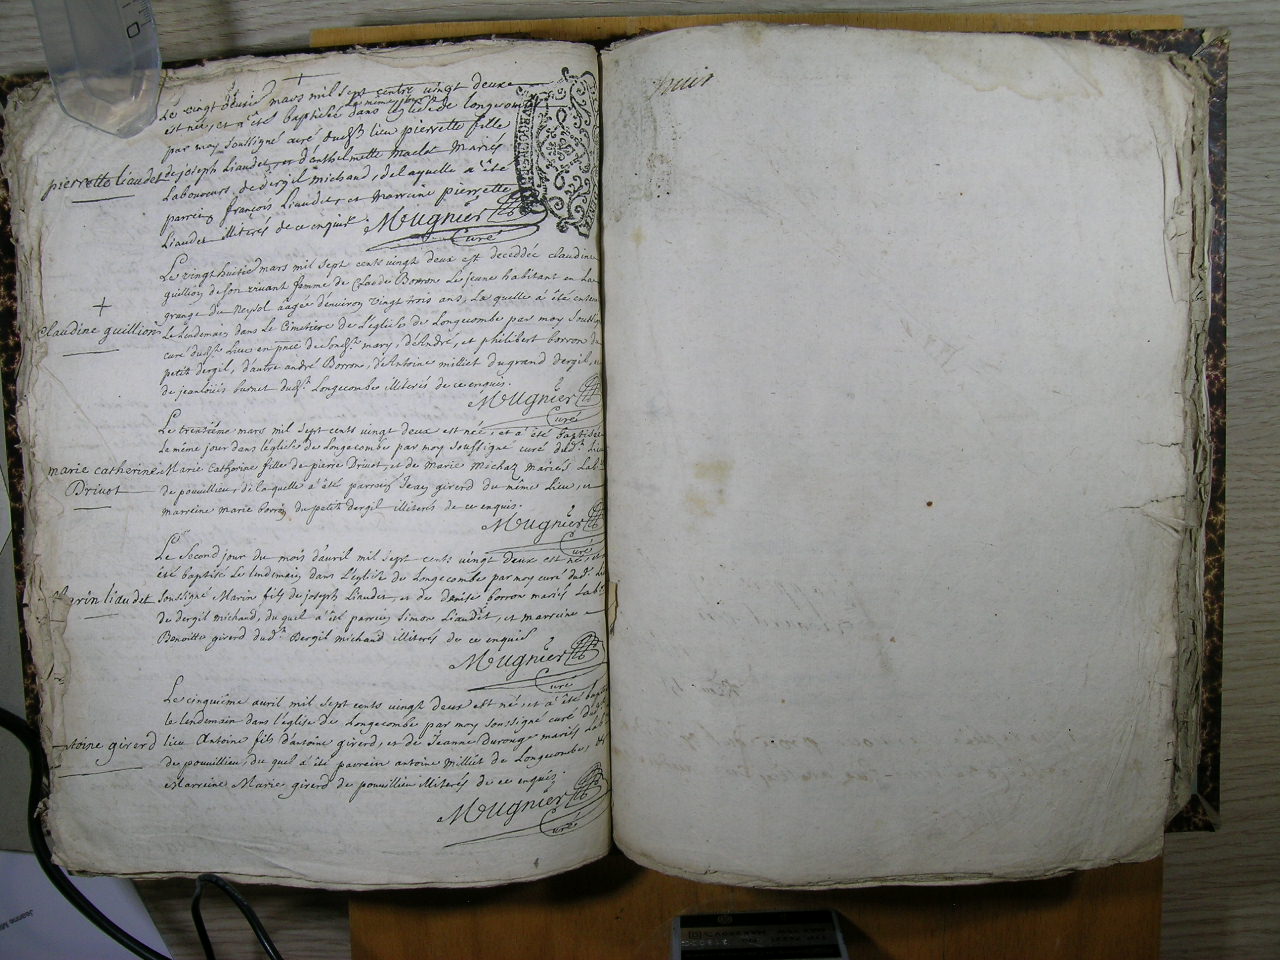 Le vingt deuxie mars mil sept centre vingt deux
est née, et a été baptisée le même jour dans leglise de longecombe
par moy soussigné curé dud.t lieu pierrette fille
pierrette liaudet
de joseph Liaudet, et d'anthelmette maclet mariés
Laboureurs, de dergil michaud, de laquelle a été
parrein françois Liaudet, et marreine pierrette
Liaudet illiterés de ce enquis
Mugnier
Curé
Le vingt huitie mars mil sept cents vingt deux est deceddée claudine
guillion de son vivant femme de Claude Borron Le jeune habitant en La
grange du aagée d'environ vingt trois ans, La quelle a été
claudine guillion
Le Lendemain dans Le Cimetiere de L'eglise de Longecombe par moy
curé dud.t lieu en de mary, d'André, et philibert borron
petit dergil, d'autre andré Borron, d'Antoine milliet du grand dergil, et
de jean louïs burnet dud.t Longecombe illiterés de ce enquis.
Mugnier
Curé
Le trentième mars mil sept cents vingt deux est née, et a été baptisée
le même jour dans l'eglise de Longecombe par moy soussigné curé dud.t
marie catherine
Drivot
Marie Catherine fille de pierre Drivot, et de marie michaz mariés Lab.
de pouvillieu, de laquelle a été parrein Jean girerd du même Lieu, et
marreine marie borron du petit dergil illiterés de ce enquis.
Mugnier
Curé
Le second jour du mois d'avril mil sept cents vingt deux est né, et a
été baptisé Le lendemain dans L'eglise de Longecombe par moy curé dud.t
arin liaudet
soussigné Marin fils de joseph Liaudet, et de denise borron mariés Lab.
de dergil michaud, du quel a été parrein simon Liaudet, et marreine
Benoitte girerd dud.t Dergil michaud illiterés de ce enquis
Mugnier
Curé
Le cinquième avril mil sept cents vingt deux est né, et a été
le lendemain dans l'eglise de Longecombe par moy soussigné curé
toine girerd
lieu Antoine fils d'antoine girerd, et de Jeanne mariés
de pouvillieu, du quel a été parrein antoine Milliet de Longecombe, et
Marreine Marie girerd de pouvillieu illiterés de ce enquis.
Mugnier
Curé